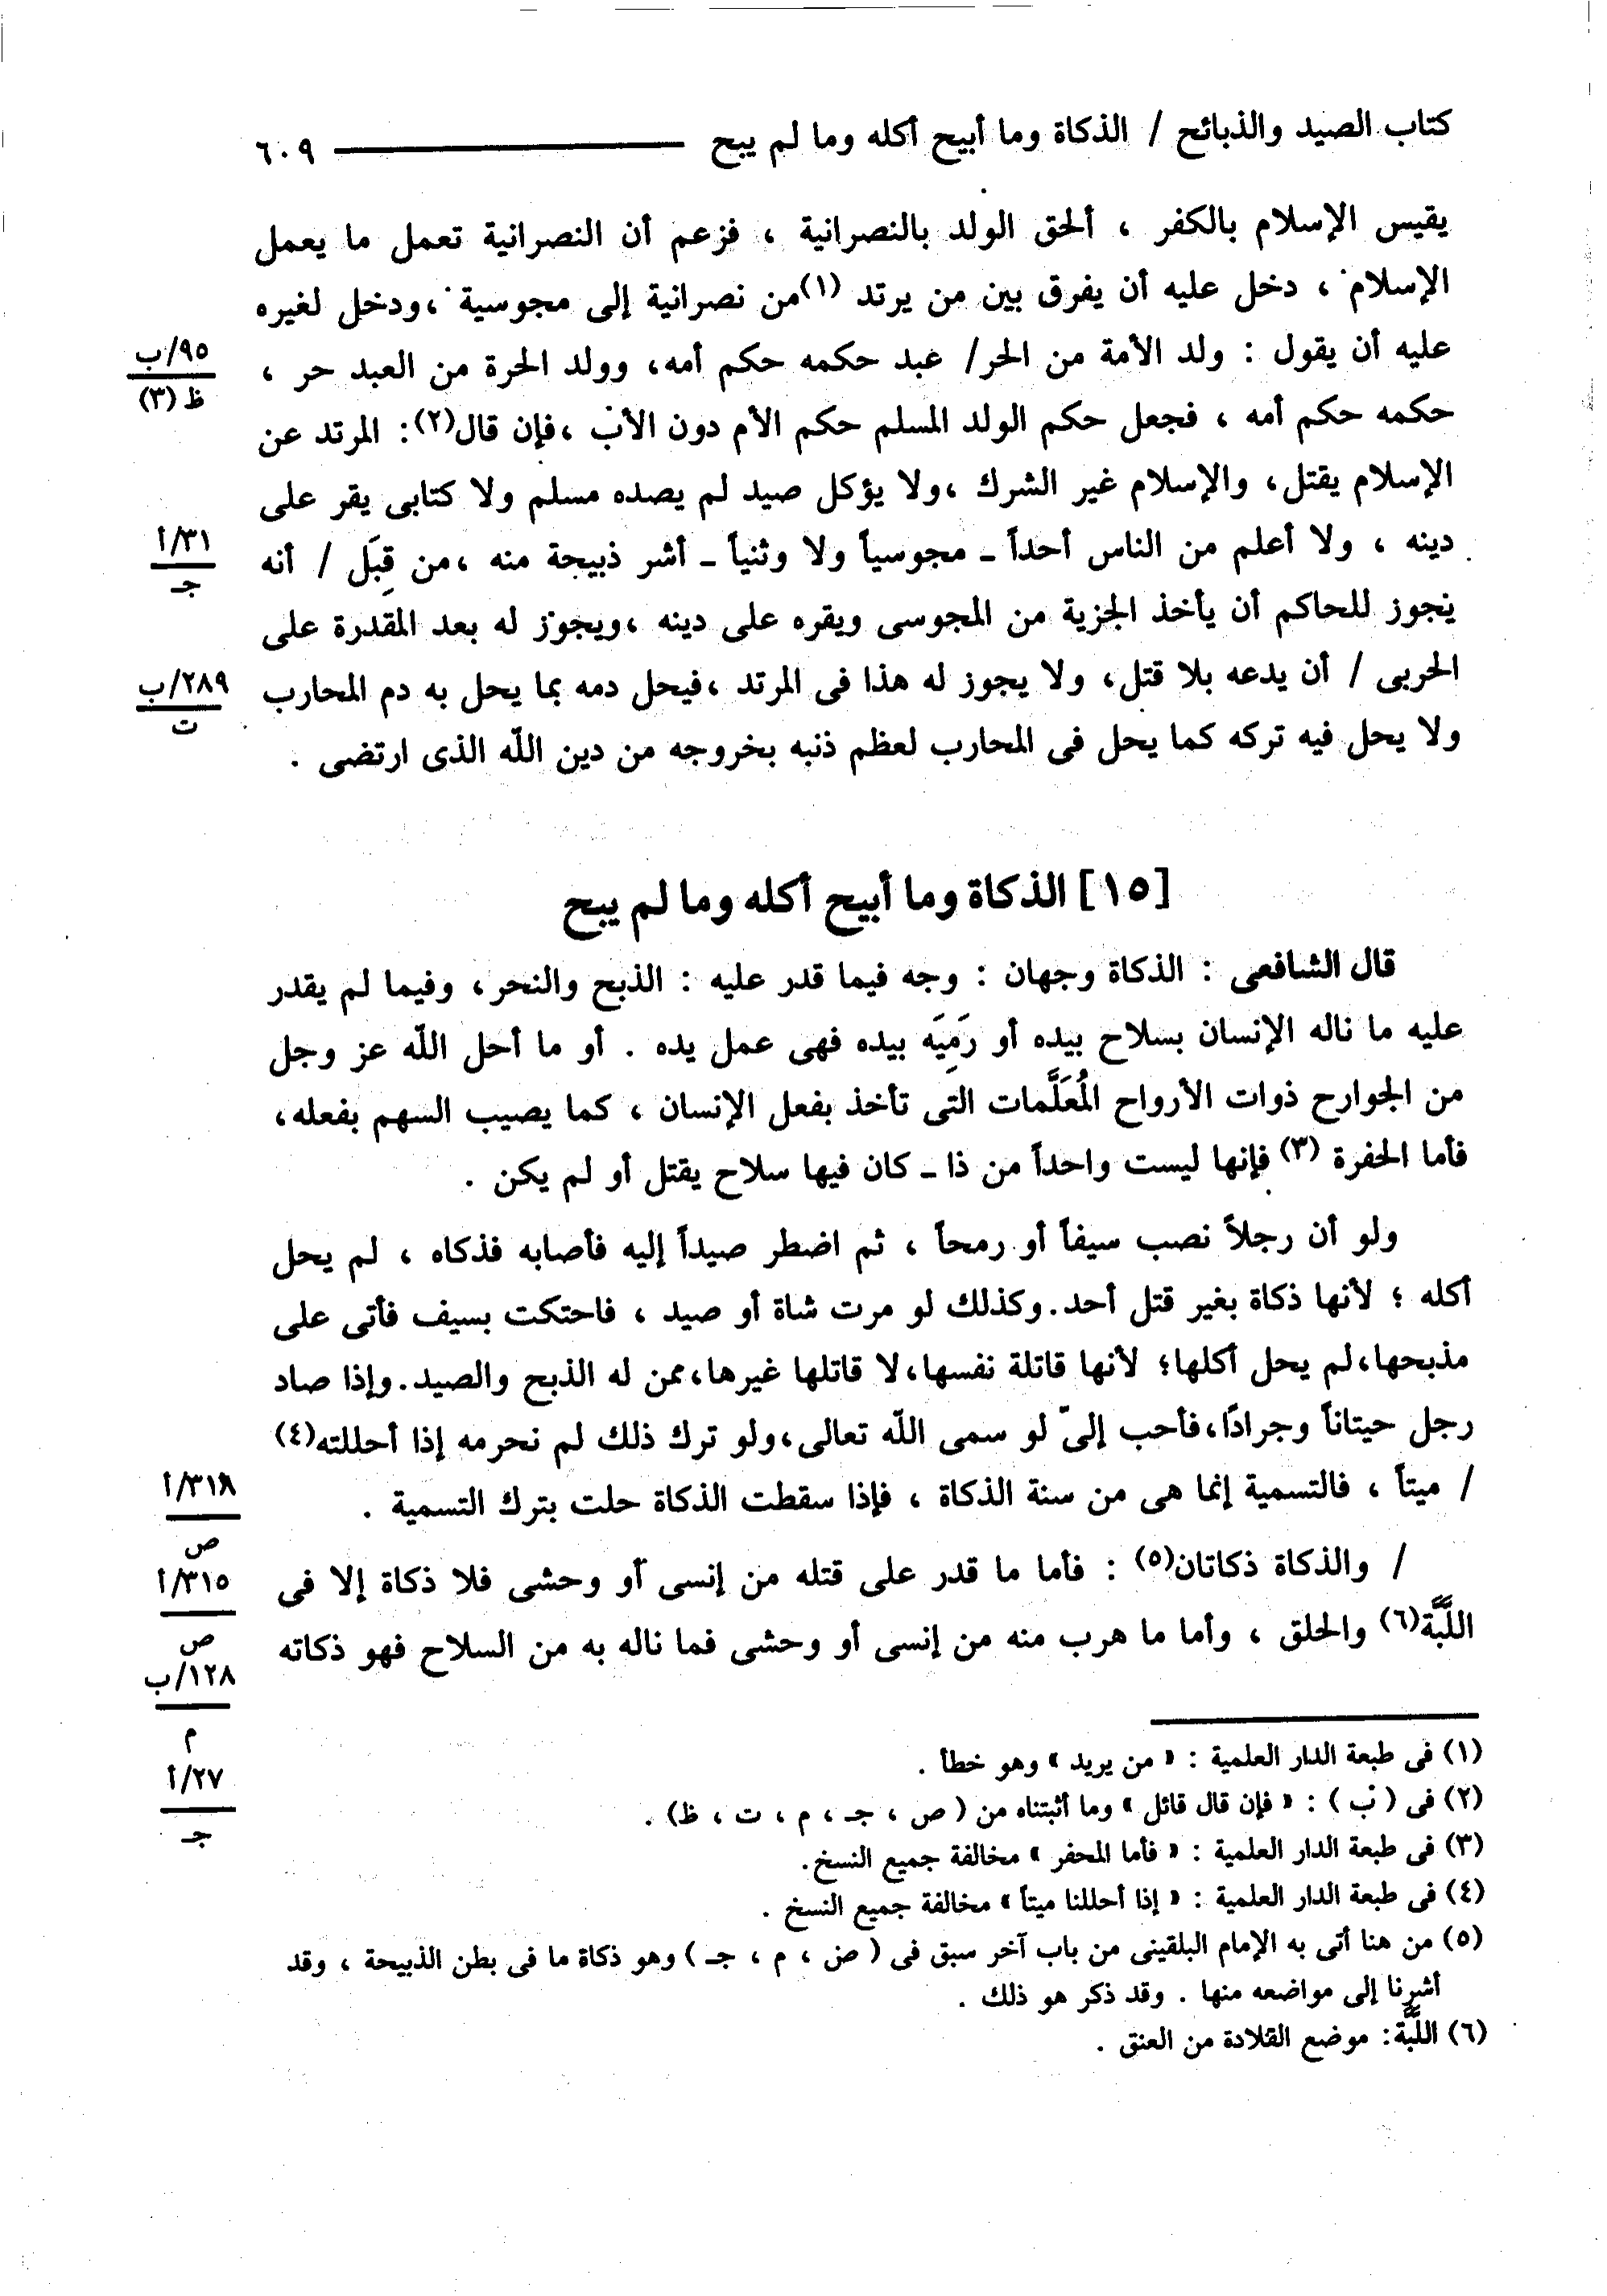 كتاب الصيد والذبائح / الذكاة وما أبيح أكله وما لم يبح ـــــــــــــ ٦٠٩
يقيس الإسلام بالكفر ، ألحق الولد بالنصرانية ، فزعم أن النصرانية تعمل ما يعمل
الإسلام ، دخل عليه أن يفرق بين من يرتد (١) من نصرانية إلى مجوسية ، ودخل لغيره
عليه أن يقول : ولد الأمة من الحر/ عبد حكمه حكم أمه، وولد الحرة من العبد حر ،
٩٥/ب
ظ (٣)
حكمه حكم أمه ، فجعل حكم الولد المسلم حكم الأم دون الأب ، فإن قال(٢): المرتد عن
الإسلام يقتل، والإسلام غير الشرك ، ولا يؤكل صيد لم يصده مسلم ولا كتابى يقر على
دينه ، ولا أعلم من الناس أحداً ـ مجوسياً ولا وثنياً ـ أشر ذبيحة منه ، من قِبَل / أنه
٣١/أ
جـ
يجوز للحاكم أن يأخذ الجزية من المجوسى ويقره على دينه ، ويجوز له بعد المقدرة على
الحربى / أن يدعه بلا قتل، ولا يجوز له هذا فى المرتد ، فيحل دمه بما يحل به دم المحارب
٢٨٩/ب
ت
ولا يحل فيه تركه كما يحل فى المحارب لعظم ذنبه بخروجه من دين الله الذى ارتضى .
[١٥] الذكاة وما أبيح أكله وما لم يبح
قال الشافعى : الذكاة وجهان : وجه فيما قدر عليه : الذبح والنحر، وفيما لم يقدر
عليه ما ناله الإنسان بسلاح بيده أو رَمِيَه بيده فهى عمل يده . أو ما أحل الله عز وجل
من الجوارح ذوات الأرواح المُعَلَّمات التى تأخذ بفعل الإنسان ، كما يصيب السهم بفعله،
فأما الحفرة (٣) فإنها ليست واحداً من ذا ـ كان فيها سلاح يقتل أو لم يكن .
ولو أن رجلاً نصب سيفاً أو رمحاً ، ثم اضطر صيداً إليه فأصابه فذكاه ، لم يحل
أكله ؛ لأنها ذكاة بغير قتل أحد. وكذلك لو مرت شاة أو صيد ، فاحتكت بسيف فأتى على
مذبحها، لم يحل أكلها؛ لأنها قاتلة نفسها، لا قاتلها غيرها، ممن له الذبح والصيد. وإذا صاد
رجل حيتاناً وجرادًا، فأحب إلىّ لو سمى الله تعالى، ولو ترك ذلك لم نحرمه إذا أحللته(٤)
/ ميتاً ، فالتسمية إنما هى من سنة الذكاة ، فإذا سقطت الذكاة حلت بترك التسمية .
٣١٨/أ
ص
/ والذكاة ذكاتان(٥) : فأما ما قدر على قتله من إنسى أو وحشى فلا ذكاة إلا فى
٣١٥/أ
ص
اللَّبَّة(٦) والحلق ، وأما ما هرب منه من إنسى أو وحشى فما ناله به من السلاح فهو ذكاته
١٢٨/ب
م
٢٧/أ
جـ
(١) فى طبعة الدار العلمية : « من يريد » وهو خطأ .
(٢) فى ( ب ) : « فإن قال قائل » وما أثبتناه من ( ص ، جـ ، م ، ت ، ظ) .
(٣) فى طبعة الدار العلمية : « فأما المحفر » مخالفة جميع النسخ.
(٤) فى طبعة الدار العلمية : « إذا أحللنا ميتاً » مخالفة جميع النسخ .
(٥) من هنا أتى به الإمام البلقينى من باب آخر سبق فى ( ص ، م ، جـ ) وهو ذكاة ما فى بطن الذبيحة ، وقد
أشرنا إلى مواضعه منها . وقد ذكر هو ذلك .
(٦) اللَّبَّة: موضع القلادة من العنق .